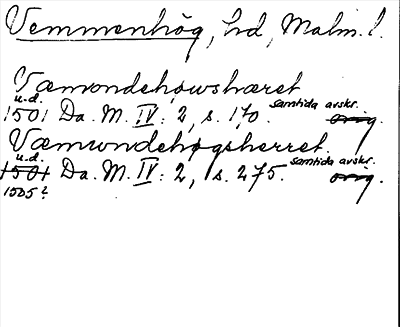 Vemmenhög, hd, Malm. l.
Væmondehøwshæret
u.d. samtida avskr.
1501 Da. M. IV: 2, s. 170. orig.
Væmundehøgsherret.
u.d. samtida avskr.
1501 Da. M. IV: 2, s. 275. orig.
1505?